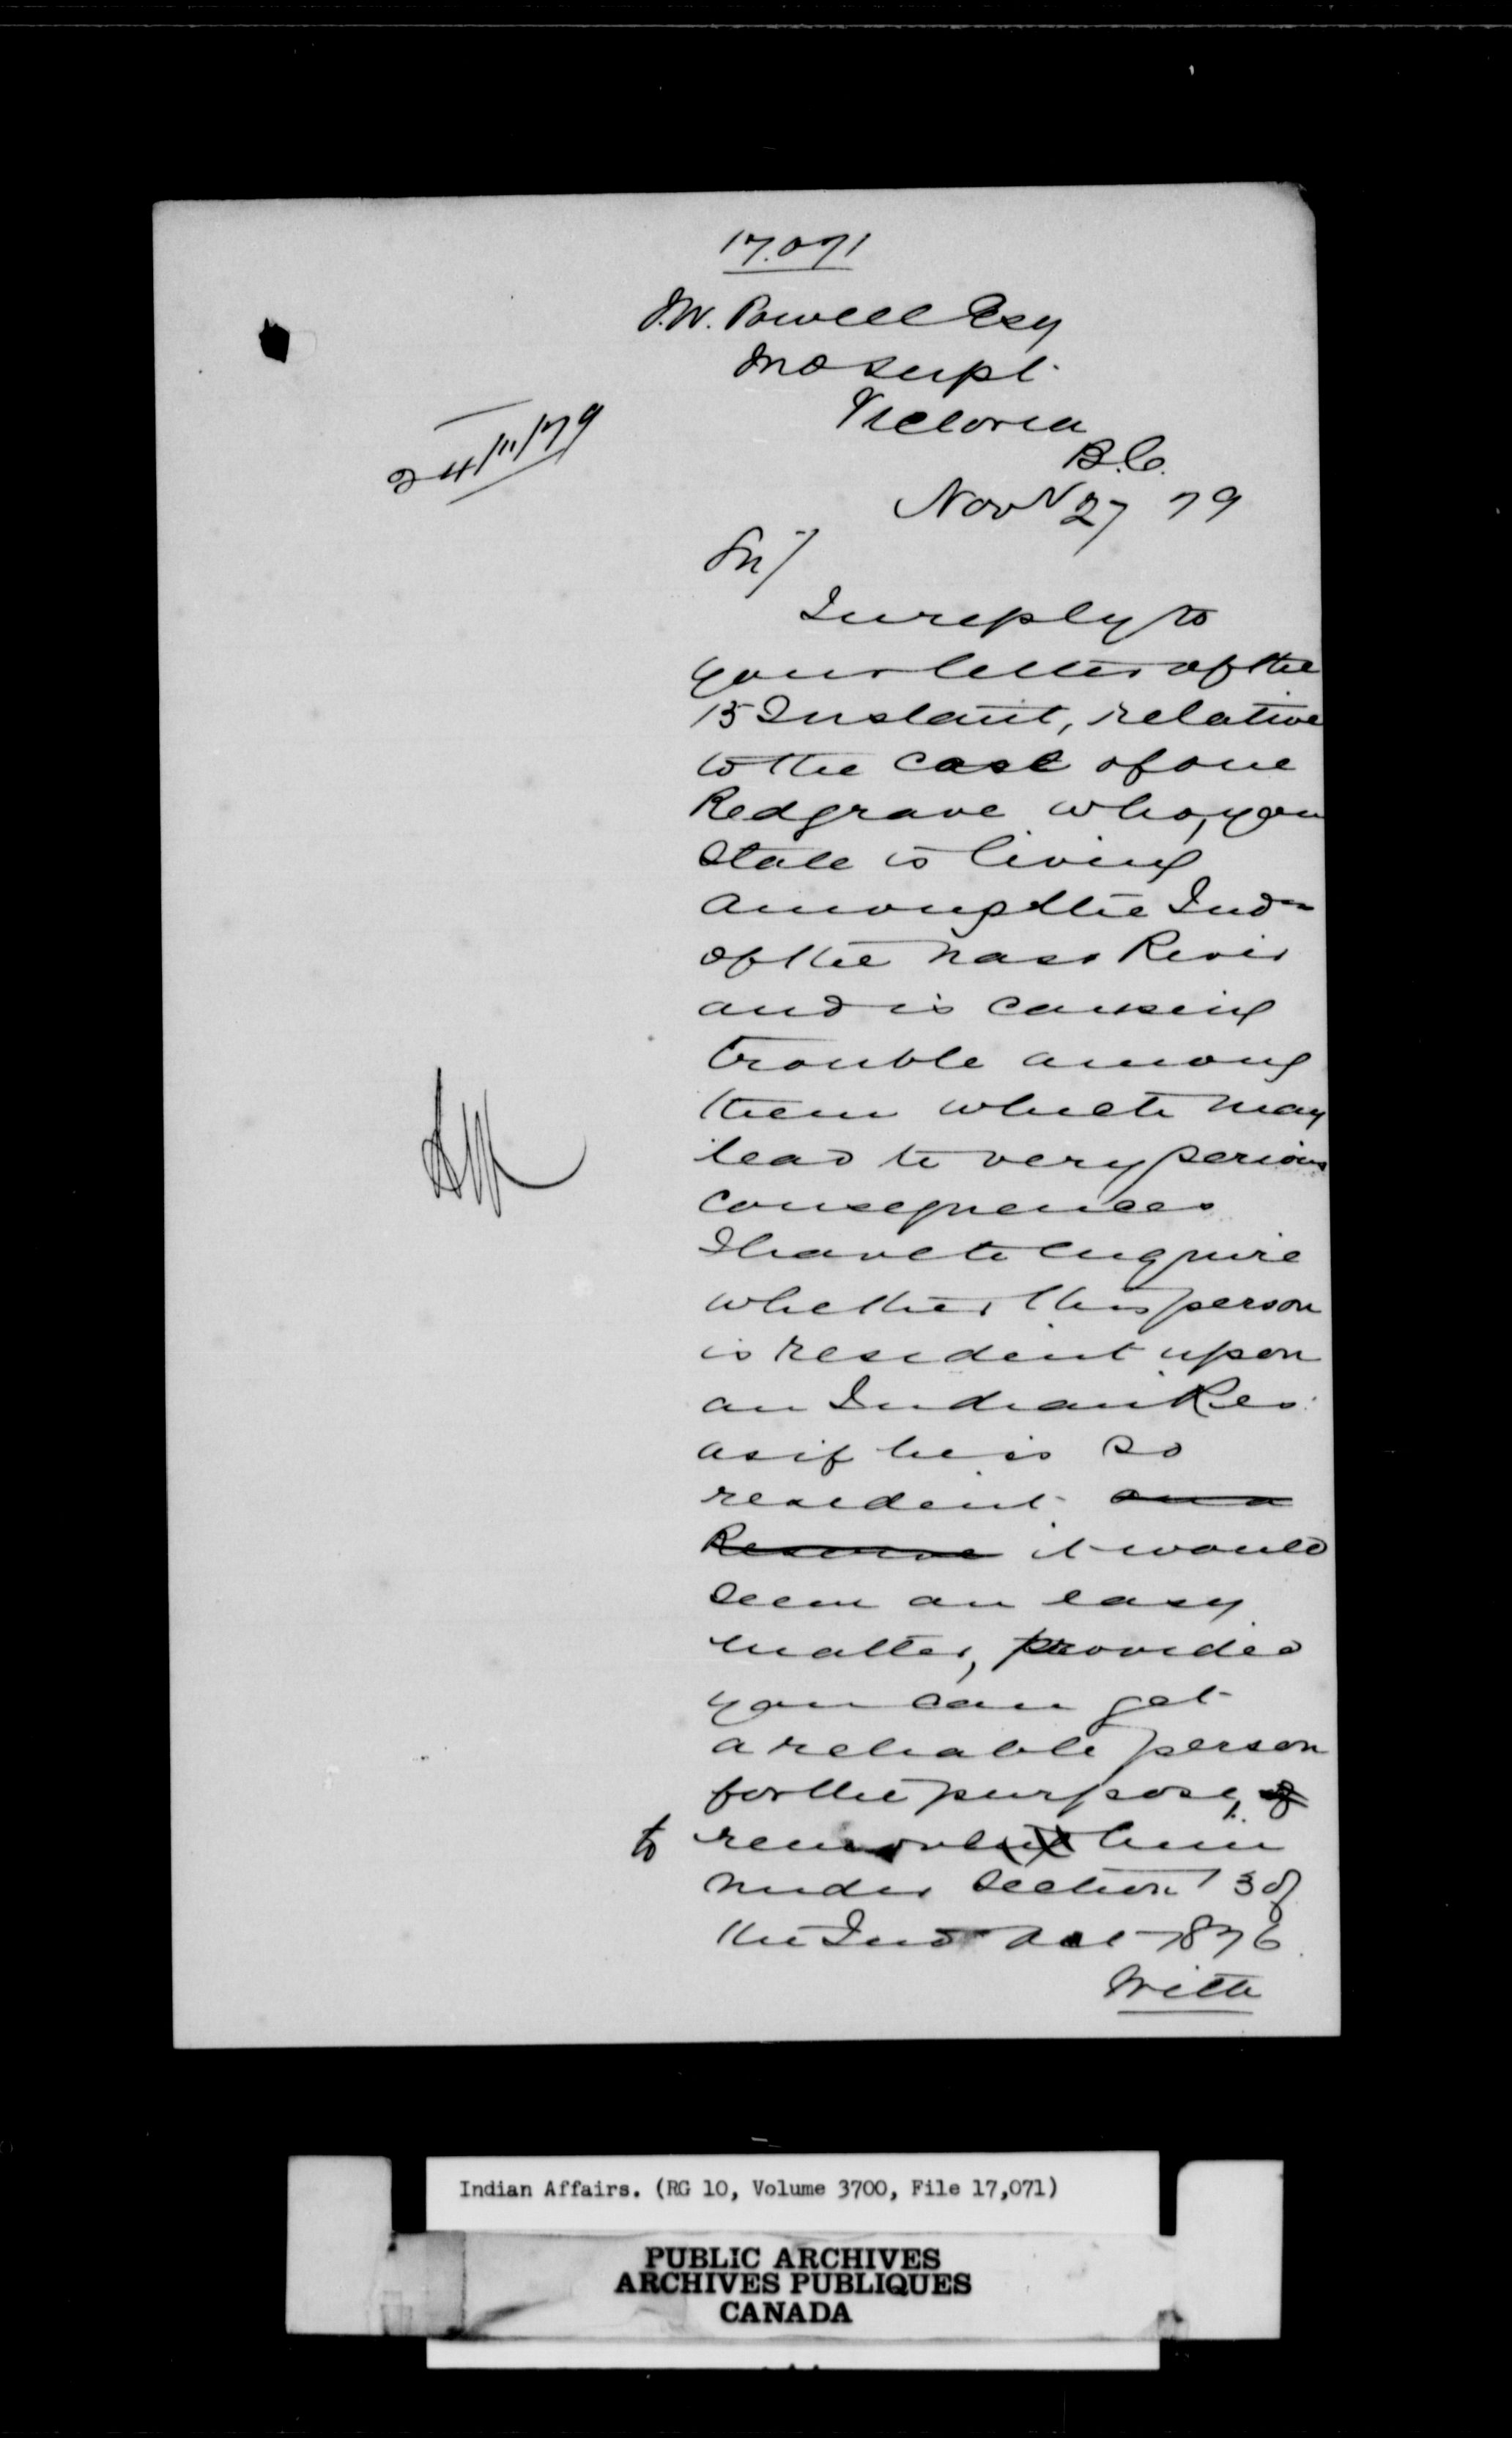 17.071
I.W. Powell Esq
Ind Supt.
Victoria
B.C.
24/11/79
Novr 27 79
Sir/
In reply to
your letter of the
15 Instant, relative
to the case of one
Redgrave who, you
state is living
among the Inds
of the Nass River
and is causing
trouble among
them which may
lead to very serious
consequences
I have to enquire
whether this person
is resident upon
an Indian Res.
as if he is so
resident on a
Reserve it would
seem an easy
matter, provided
you can get
a reliable person
for the purpose, of
to removing him
under Section 13 of
the Ind Act 1876.
With
Indian Affairs. (RG 10, Volume 3700, File 17,071)
PUBLIC ARCHIVES
ARCHIVES PUBLIQUES
CANADA